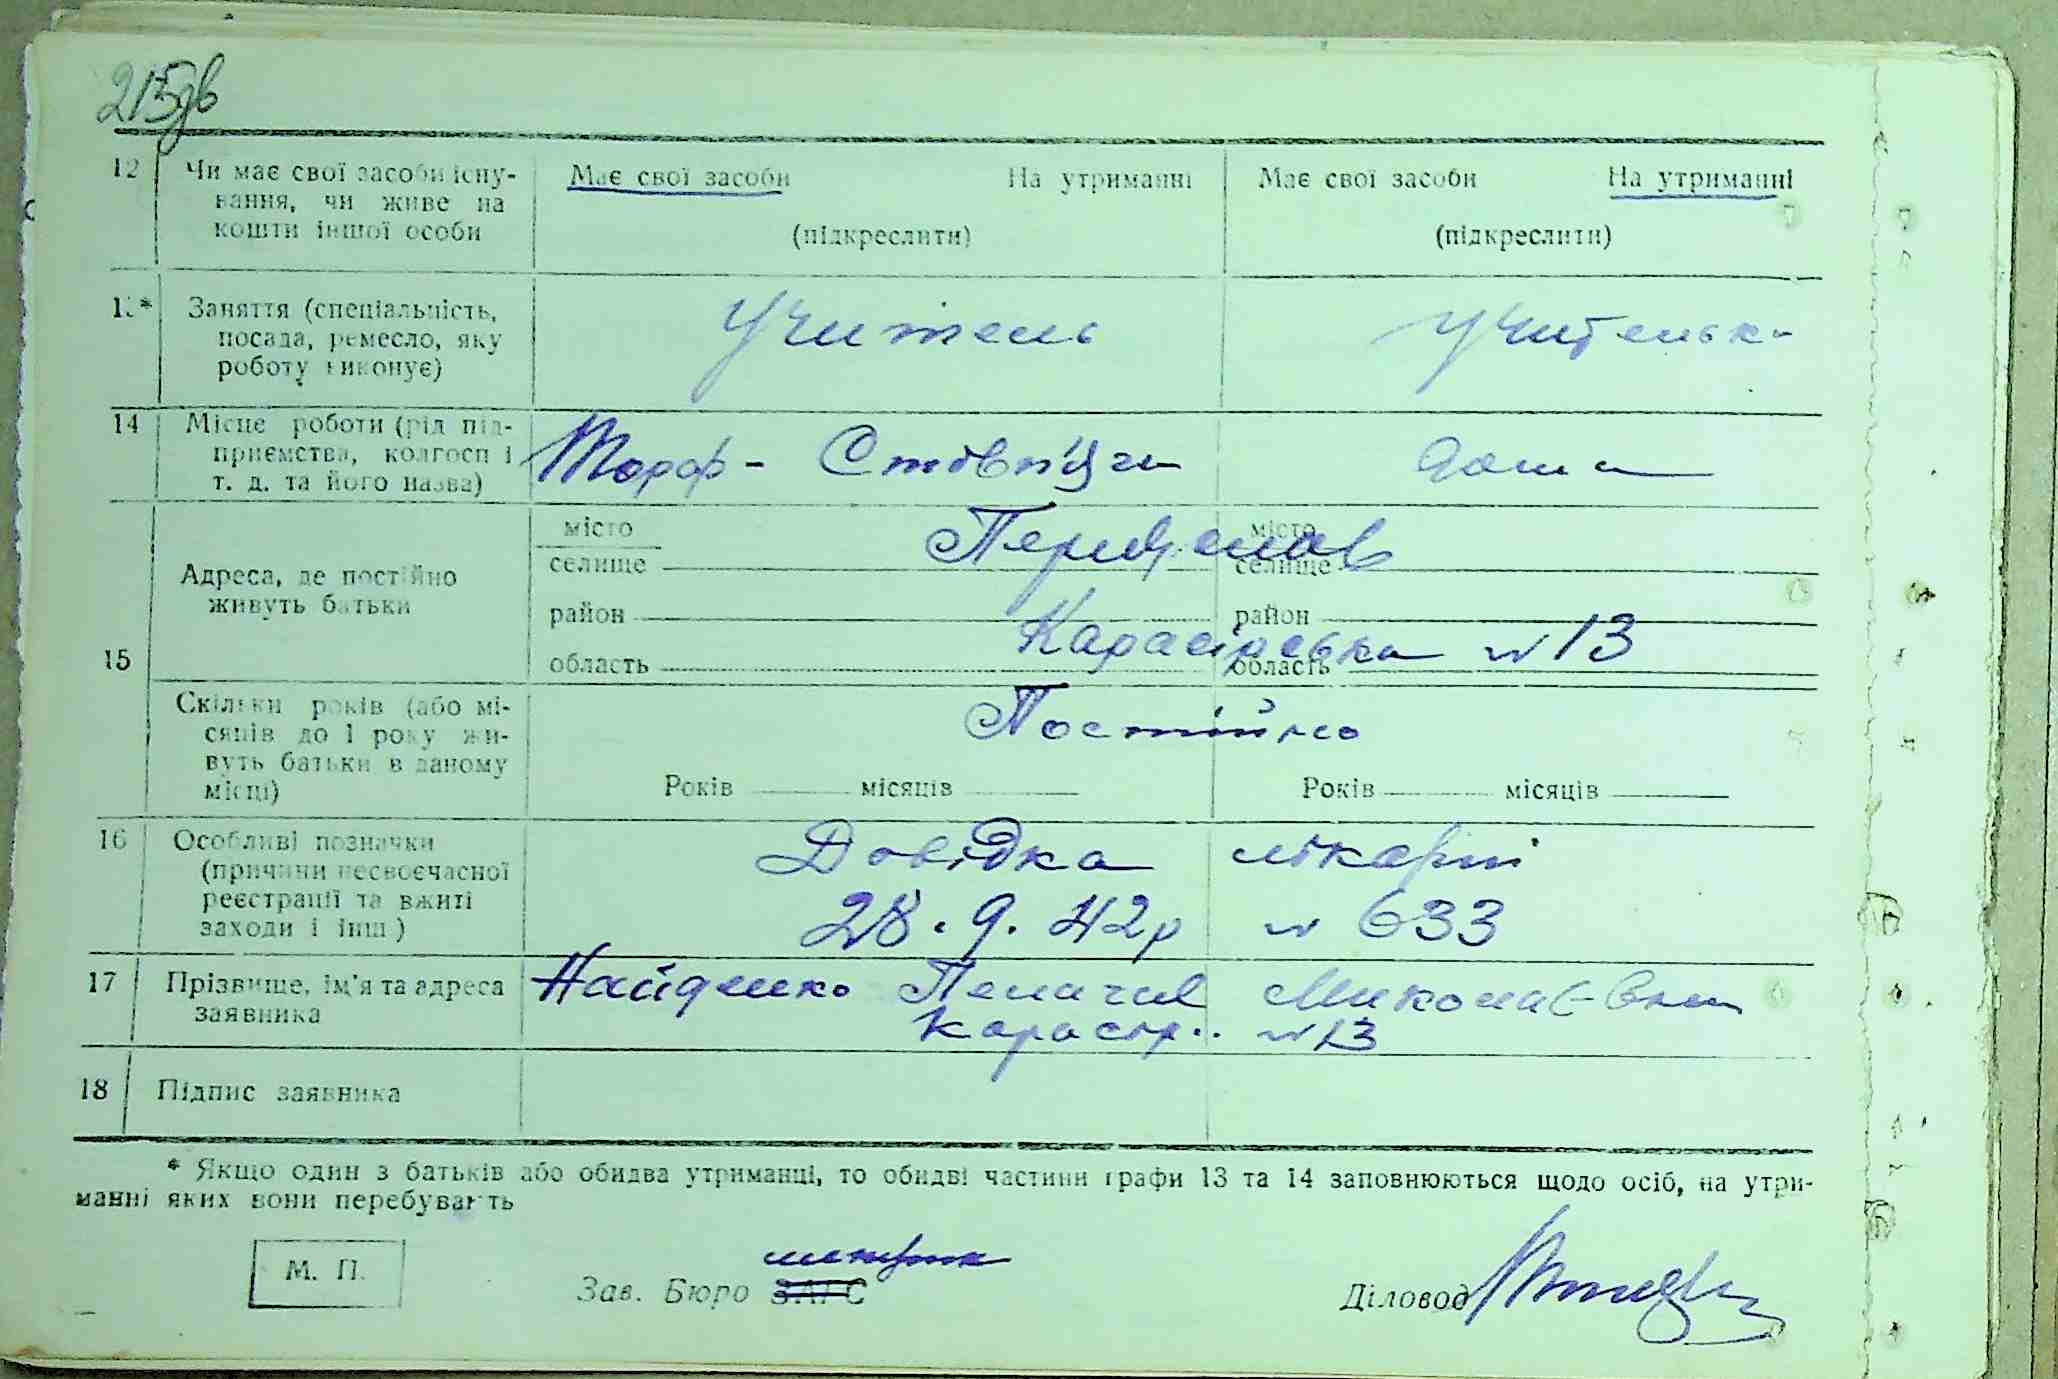 215зв
12 Чи має свої засоби існу- Має свої засоби На утриманні Має свої засоби На утриманні
вання, чи живе на
кошти іншої особи (підкреслити) (підкреслити)
13* Заняття (спеціальність, Учитель Учителька
посада, ремесло, яку
роботу виконує)
14 Місце роботи (рід під- Торф - Стовп'яги дома
приємства, колгосп і
т. д. та його назва)
15 Адреса, де постійно
живуть батьки
місто місто
селище Переяслав селище
район район
Карасірська № 13
область область
Скільки років (або мі- Постійно
сяців до 1 року жи-
вуть батьки в даному
місці) Років місяців Років місяців
16 Особливі позначки Довідка лікарні
(причини несвоєчасної
реєстрації та вжиті 28.9.42р № 633
заходи і інш.)
17 Прізвище, ім'я та адреса Найденко
заявника № 13
18 Підпис заявника
* Якщо один з батьків або обидва утриманці, то обидві частини графи 13 та 14 заповнюються щодо осіб, на утри-
манні яких вони перебувають
М. П. Зав. Бюро ЗАГС Діловод